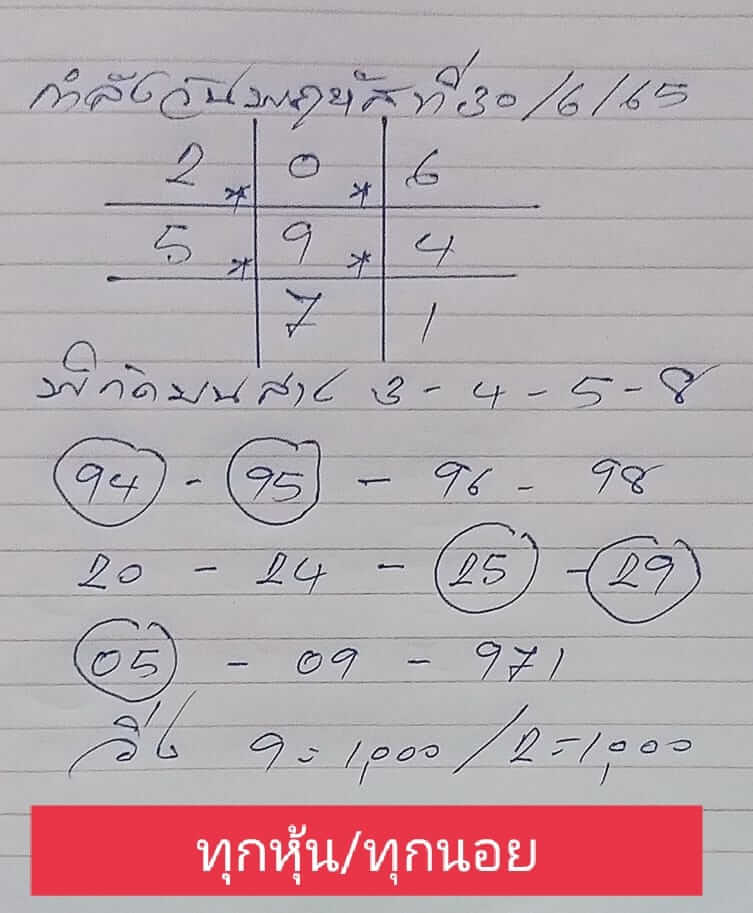 กำลังวันพฤหัสที่ 30/6/65
2 * 0 * 6
5 * 9 * 4
7 1
พิกัดบนล่าง 3-4-5-8
94 - 95 - 96 - 98
20 - 24 - 25 - 29
05 - 09 - 971
วิ่ง 9=1,000/2=1,000
ทุกหุ้น/ทุกนอย